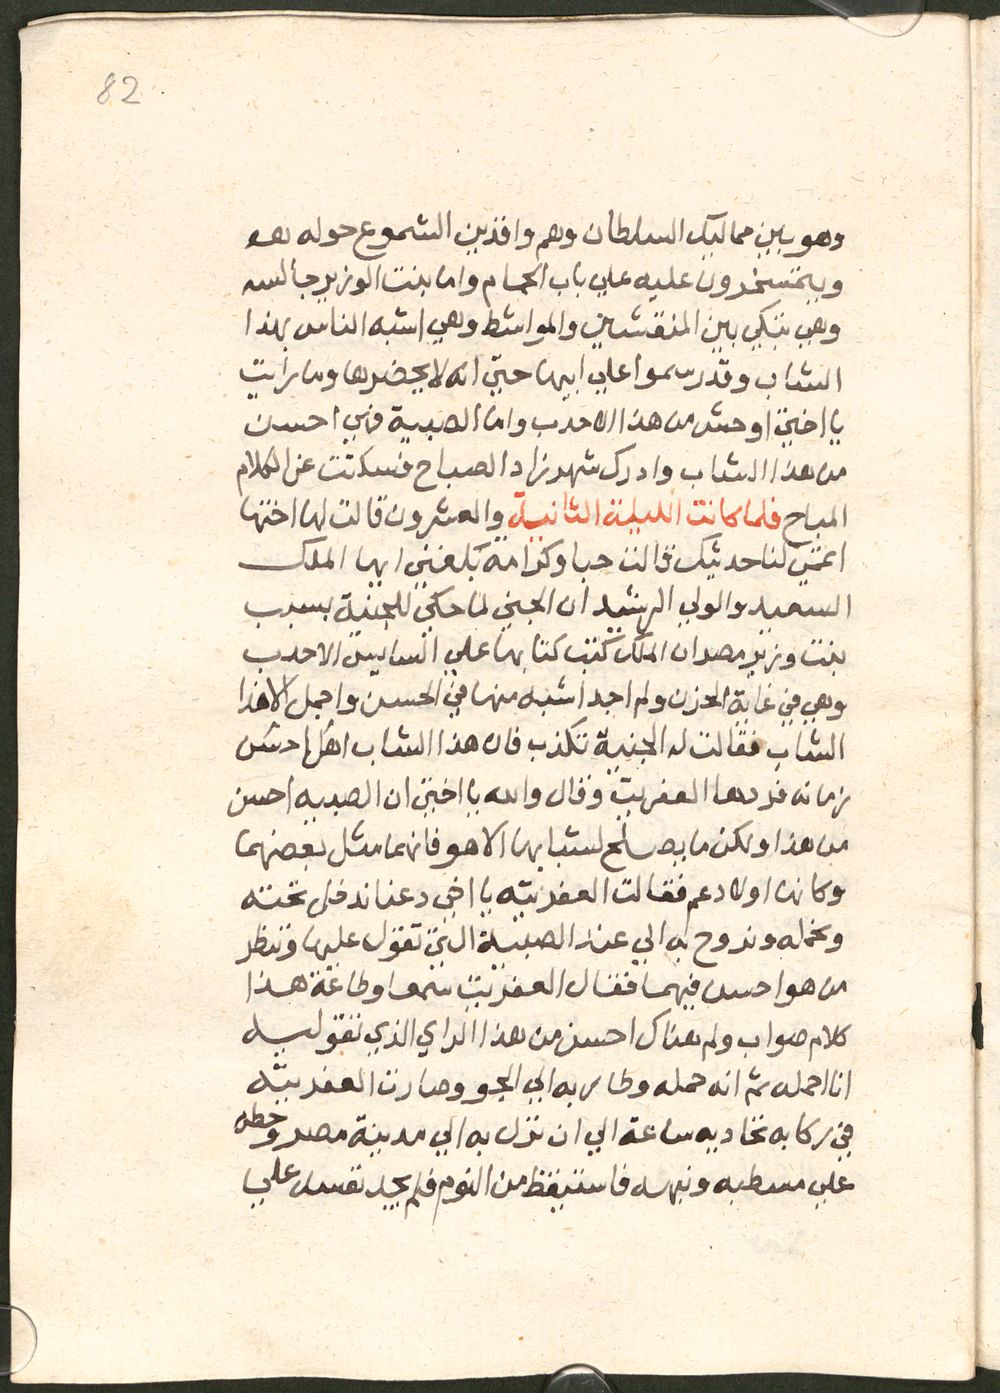 82
وهو بين مماليك السلطان وهم واقذين الشموع حوله
ويتمسخرون عليه علي باب الحمام واما بنت الوزير جالسه
وهي تبكي بين المنقشين والمواشط وهي اشبه الناس بهذا
الشاب وقد رسموا علي ابيها حتي انه لا يحضرها وما رايت
يا اختي اوحش من هذا الاحدب واما الصبية فهي احسن
من هذا الشاب وادرك شهرزاد الصباح فسكتت عن الكلام
المباح فلما كانت الليلة الثانية والعشرون قالت لها اختها
اتمي لنا حديثك قالت حبا وكرامة بلغني ايها الملك
السعيد والولي الرشيد ان الجني لما حكي للجنية بسبب
بنت وزير مصر ان الملك كتب كتابها علي السايس الاحدب
وهي في غاية الحزن ولم اجد اشبه منها في الحسن واجمل الا هذا
الشاب فقالت له الجنية تكذب فان هذا الشاب اهل احسن
زمانه فردها العفريت وقال والله يا اختي ان الصبيه احسن
من هذا ولكن ما يصلح لشبابها الا هو فانهما مثل بعضهما
وكانهما اولاد عم فقالت العفريته يا اخي دعنا ندخل تحته
ونحمله ونروح به الي عند الصبية التي تقول عليها وننظر
من هو احسن فيهما فقال العفريت سمعا وطاعة هذا
كلام صواب ولم هناك احسن من هذا الراي الذي تقوليه
انا احمله ثم انه حمله وطار به الي الجو وصارت العفريته
في ركابه تحاديه ساعة الي ان نزل به الي مدينة مصر وحطه
علي مسطبه ونبهه فاستيقظ من النوم فلم يجد نفسه علي